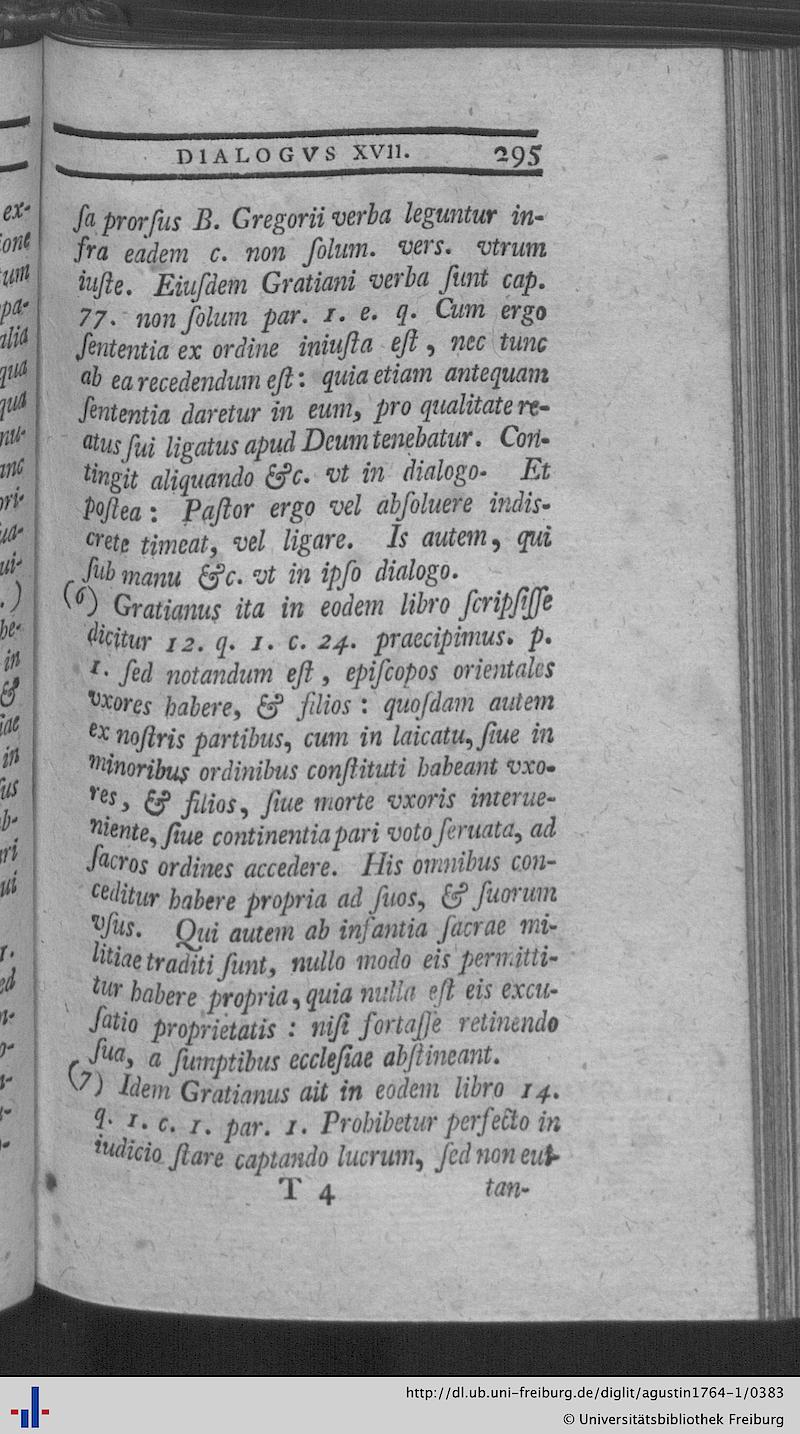 DIALOGVS XVII. 295
ſa prorſus B. Gregorii verba leguntur in-
fra eadem c. non ſolum. vers. vtrum
iuſte. Eiuſdem Gratiani verba ſunt cap.
77. non ſolum par. 1. e. q. Cum ergo
ſententia ex ordine iniuſta eſt, nec tunc
ab ea recedendum eſt: quia etiam antequam
ſententia daretur in eum, pro qualitate re-
atus ſui ligatus apud Deum tenebatur. Con-
tingit aliquando &c. vt in dialogo. Et
poſtea: Paſtor ergo vel abſoluere indis-
crete timeat, vel ligare. Is autem, qui
ſub manu &c. vt in ipſo dialogo.
(6) Gratianus ita in eodem libro ſcripſiſſe
dicitur 12. q. 1. c. 24. praecipimus. p.
1. ſed notandum eſt, epiſcopos orientales
vxores habere, & filios: quoſdam autem
ex noſtris partibus, cum in laicatu, ſiue in
minoribus ordinibus conſtituti habeant vxo-
res, & filios, ſiue morte vxoris interue-
niente, ſiue continentia pari voto ſeruata, ad
ſacros ordines accedere. His omnibus con-
ceditur habere propria ad ſuos, & ſuorum
vſus. Qui autem ab infantia ſacrae mi-
litiae traditi ſunt, nullo modo eis permitti-
tur habere propria, quia nulla eſt eis excu-
ſatio proprietatis: niſi fortaſſe retinendo
ſua, a ſumptibus eccleſiae abſtineant.
(7) Idem Gratianus ait in eodem libro 14.
q. 1. c. 1. par. 1. Prohibetur perfecto in
iudicio ſtare captando lucrum, ſed non eui-
T 4 tan-
ex-
ione
tum
pa-
alia
qua
qua
nu-
anc
ori-
ua-
ui-
.)
he-
in
&
iae
in
ſus
ab-
ri
ui
1.
ed
http://dl.ub.uni-freiburg.de/diglit/agustin1764-1/0383
© Universitätsbibliothek Freiburg